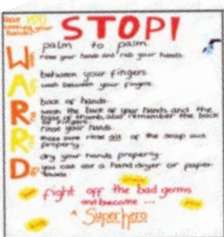 Have YOU
washed your
hands?
STOP!
W palm to palm.
rinse your hands and rub your hands.
A between your fingers.
wash between your fingers.
R back of hands.
wash the back of your hands and the
base of thumb, also remember the back
of fingers.
R rinse your hands.
make sure rinse all of the soap out
properly.
D dry your hands properly.
you can use a hand dryer or paper
towels.
fight off the bad germs
and become ...
a Superhero